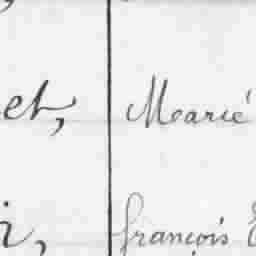 et, Marié
i, françois